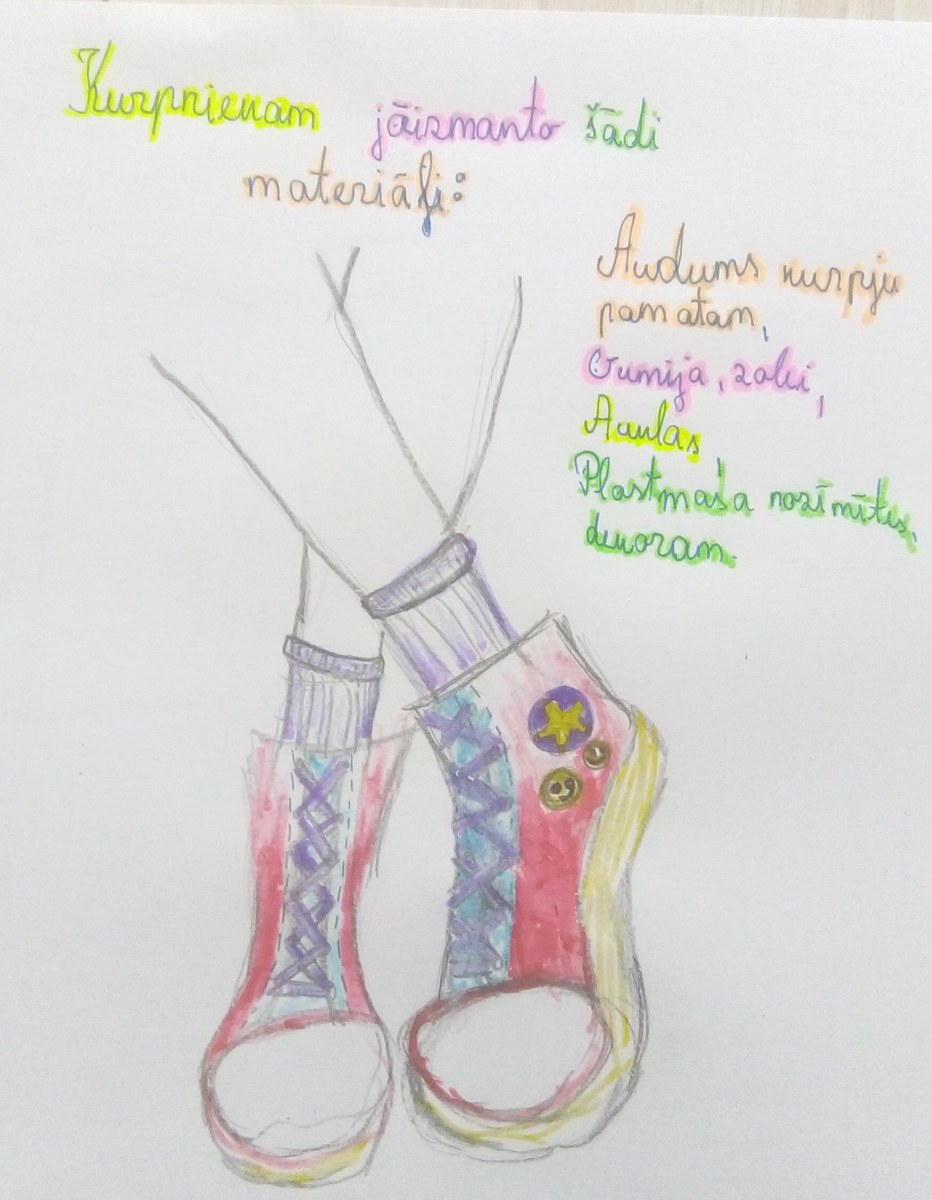 Kurpniekam jāizmanto šādi
materiāļi:
Audums kurpju
pamatam,
Gumija, zoļei,
Auklas,
Plastmasa nozīmītes,
dekoram.